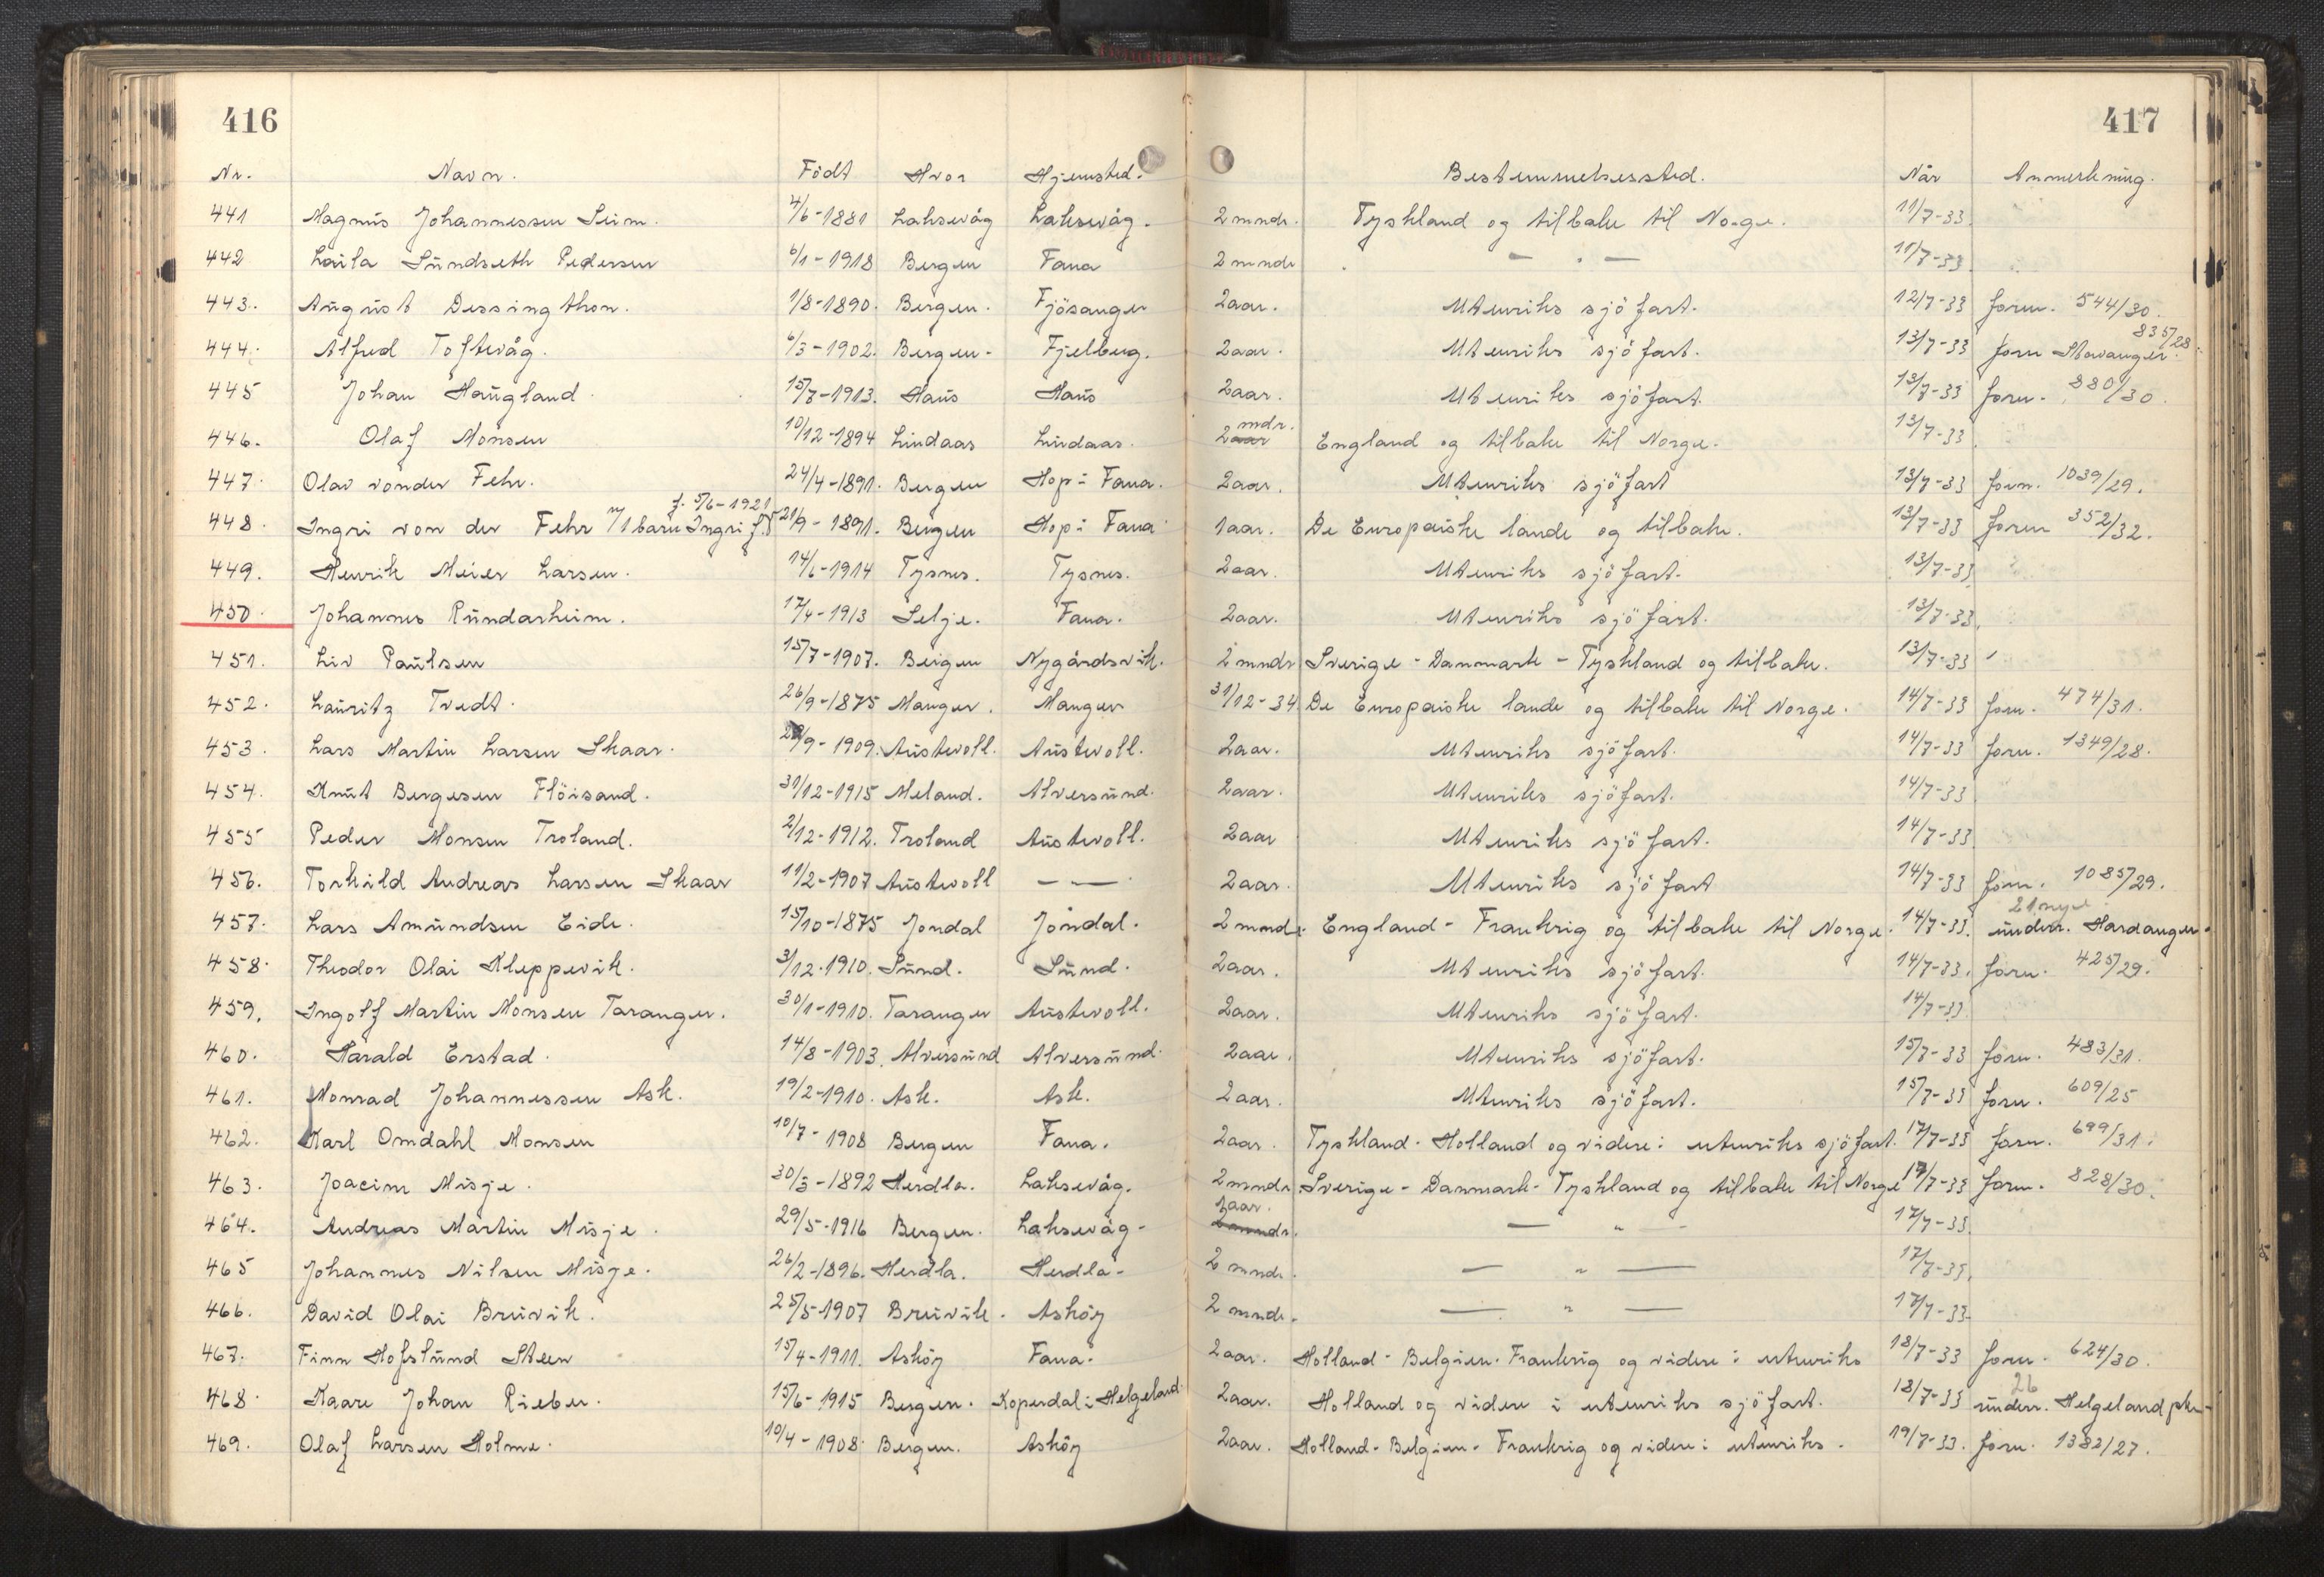 416
417
Nr. Navn. Født Hvor Hjemsted. Bestemmelsessted. Når Anmerkning.
441 Magnus Johannessen Seim. 4/6-1881 Laksevåg Laksevåg. 2 mndr. Tyskland og tilbake til Norge. 11/7-33
442 Laila Sundseth Pedersen 6/1-1918 Bergen Fana 2 mndr — · — 11/7-33
443. August Dessingthon. 1/8-1890. Bergen. Fjøsanger 2 aar. Utenriks sjøfart. 12/7-33 forn. 544/30.
444. Alfred Toftevåg. 6/3-1902. Bergen. Fjelberg. 2 aar. Utenriks sjøfart. 13/7-33 forn Stavanger. 835/28.
445 Johan Haugland. 15/7-1913. Haus Haus 2 aar. Utenriks sjøfart. 13/7-33 forn. 880/30.
446. Olaf Monsen 10/12-1894 Lindaas Lindaas. 2 aar mdr. England og tilbake til Norge. 13/7-33
447. Olav vonder Fehr. 24/4-1891. Bergen Hop i Fana. 2 aar. Utenriks sjøfart 13/7-33 forn. 1039/29.
448. Ingri von der Fehr m/1 barn Ingri f. 5/6-1921 21/9-1891. Bergen Hop i Fana 1 aar. De Europæiske lande og tilbake. 13/7-33 forn 352/32.
449. Henrik Meier Larsen. 14/6-1914 Tysnes. Tysnes. 2 aar. Utenriks sjøfart. 13/7-33
450. Johannes Rundarheim. 17/4-1913 Selje. Fana. 2 aar. Utenriks sjøfart. 13/7-33
451. Liv Paulsen 15/7-1907. Bergen Nygårdsvik. 2 mndr Sverige - Danmark - Tyskland og tilbake. 13/7-33
452. Lauritz Tvedt. 26/9-1875 Manger. Manger 31/12-34. De Europæiske lande og tilbake til Norge. 14/7-33 forn. 474/31.
453. Lars Martin Larsen Skaar. /9-1909. Austevoll. Austevoll. 2 aar. Utenriks sjøfart. 14/7-33 forn. 1349/28.
454. Knut Bergesen Fløisand. 31/12-1915 Meland. Alversund. 2 aar. Utenriks sjøfart. 14/7-33
455 Peder Monsen Troland. 2/12-1912. Troland Austevoll. 2 aar Utenriks sjøfart. 14/7-33
456. Torkild Andreas Larsen Skaar 11/2-1907 Austevoll — — 2 aar. Utenriks sjøfart 14/7-33 forn. 1085/29.
457. Lars Amundsen Eide. 15/10-1875 Jondal Jondal. 2 mndr. England - Frankrig og tilbake til Norge. 14/7-33. underr. Hardanger.
458. Theodor Olai Kleppevik. 3/12.1910. Sund. Sund. 2 aar. Utenriks sjøfart. 14/7-33. forn. 425/29.
459. Ingolf Martin Monsen Taranger. 30/1-1910. Taranger Austevoll. 2 aar. Utenriks sjøfart. 14/7-33
460. Harald Erstad. 14/8-1903. Alversund Alversund. 2 aar. Utenriks sjøfart. 15/7-33 forn. 483/31.
461. Monrad Johannessen Ask. 19/2-1910. Ask. Ask. 2 aar. Utenriks sjøfart. 15/7-33 forn. 609/25
462. Karl Omdahl Monsen 10/7-1908 Bergen Fana. 2 aar. Tyskland - Holland og videre i utenriks sjøfart. 17/7-33 forn. 699/31.
463. Joacim Misje. 30/3-1892 Herdla. Laksevåg. 2 mndr. Sverige - Danmark - Tyskland og tilbake til Norge 17/7-33 forn. 828/30.
464. Andreas Martin Misje. 29/5-1916 Bergen. Laksevåg - 2 mndr. 2 aar. — " — 17/7-33.
465 Johannes Nilsen Misje. 26/2-1896. Herdla. Herdla - 2 mndr. — " — 17/7-33.
466. David Olai Bruvik. 25/5-1907 Bruvik. Askøy 2 mndr. — " — 17/7-33.
467. Finn Hofslund Steen 15/4-1911. Askøy Fana. 2 aar. Holland - Belgien. Frankrig og videre i utenriks 18/7-33 forn. 624/30.
468. Kaare Johan Rieber. 15/6-1915 Bergen. Koperdal i Helgeland. 2 aar. Holland og videre i utenriks sjøfart. 18/7-33 26 underr. Helgeland pk.
469. Olaf Larsen Holme. 10/4-1908. Bergen. Askøy 2 aar. Holland - Belgien - Frankrig og videre i utenriks. 19/7-33. forn. 1382/27.